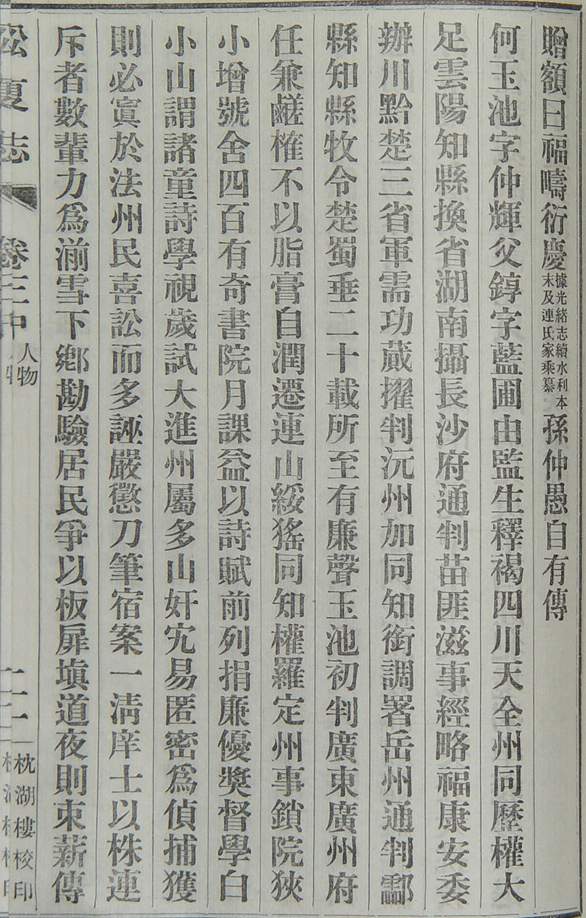 贈額曰福疇衍慶據光緒志續水利本末及連氏家乘纂孫仲愚自有傳
何玉池字仲輝父錞字藍圃由監生釋褐四川天全州同歷權大
足雲陽知縣換省湖南攝長沙府通判苗匪滋事經略福康安委
辦川黔楚三省軍需功蕆擢判沅州加同知銜調署岳州通判酃
縣知縣牧令楚蜀垂二十載所至有廉聲玉池初判廣東廣州府
任兼鹺榷不以脂膏自潤遷連山綏猺同知權羅定州事鎖院狹
小增號舍四百有奇書院月課益以詩賦前列捐廉優獎督學白
小山謂諸童詩學視歲試大進州屬多山奸宄易匿密為偵捕獲
則必寘於法州民喜訟而多誣嚴懲刀筆宿案一淸庠士以株連
斥者數輩力為湔雪下鄉勘驗居民爭以板扉塡道夜則束薪傳
松夏志 卷三中 人物 二一 枕湖樓校印